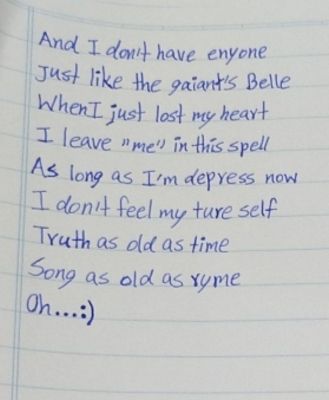 And I don't have enyone
Just like the gaiant's Belle
When I just lost my heart
I leave "me" in this spell
As long as I'm depress now
I don't feel my ture self
Truth as old as time
Song as old as ryme
Oh...:)